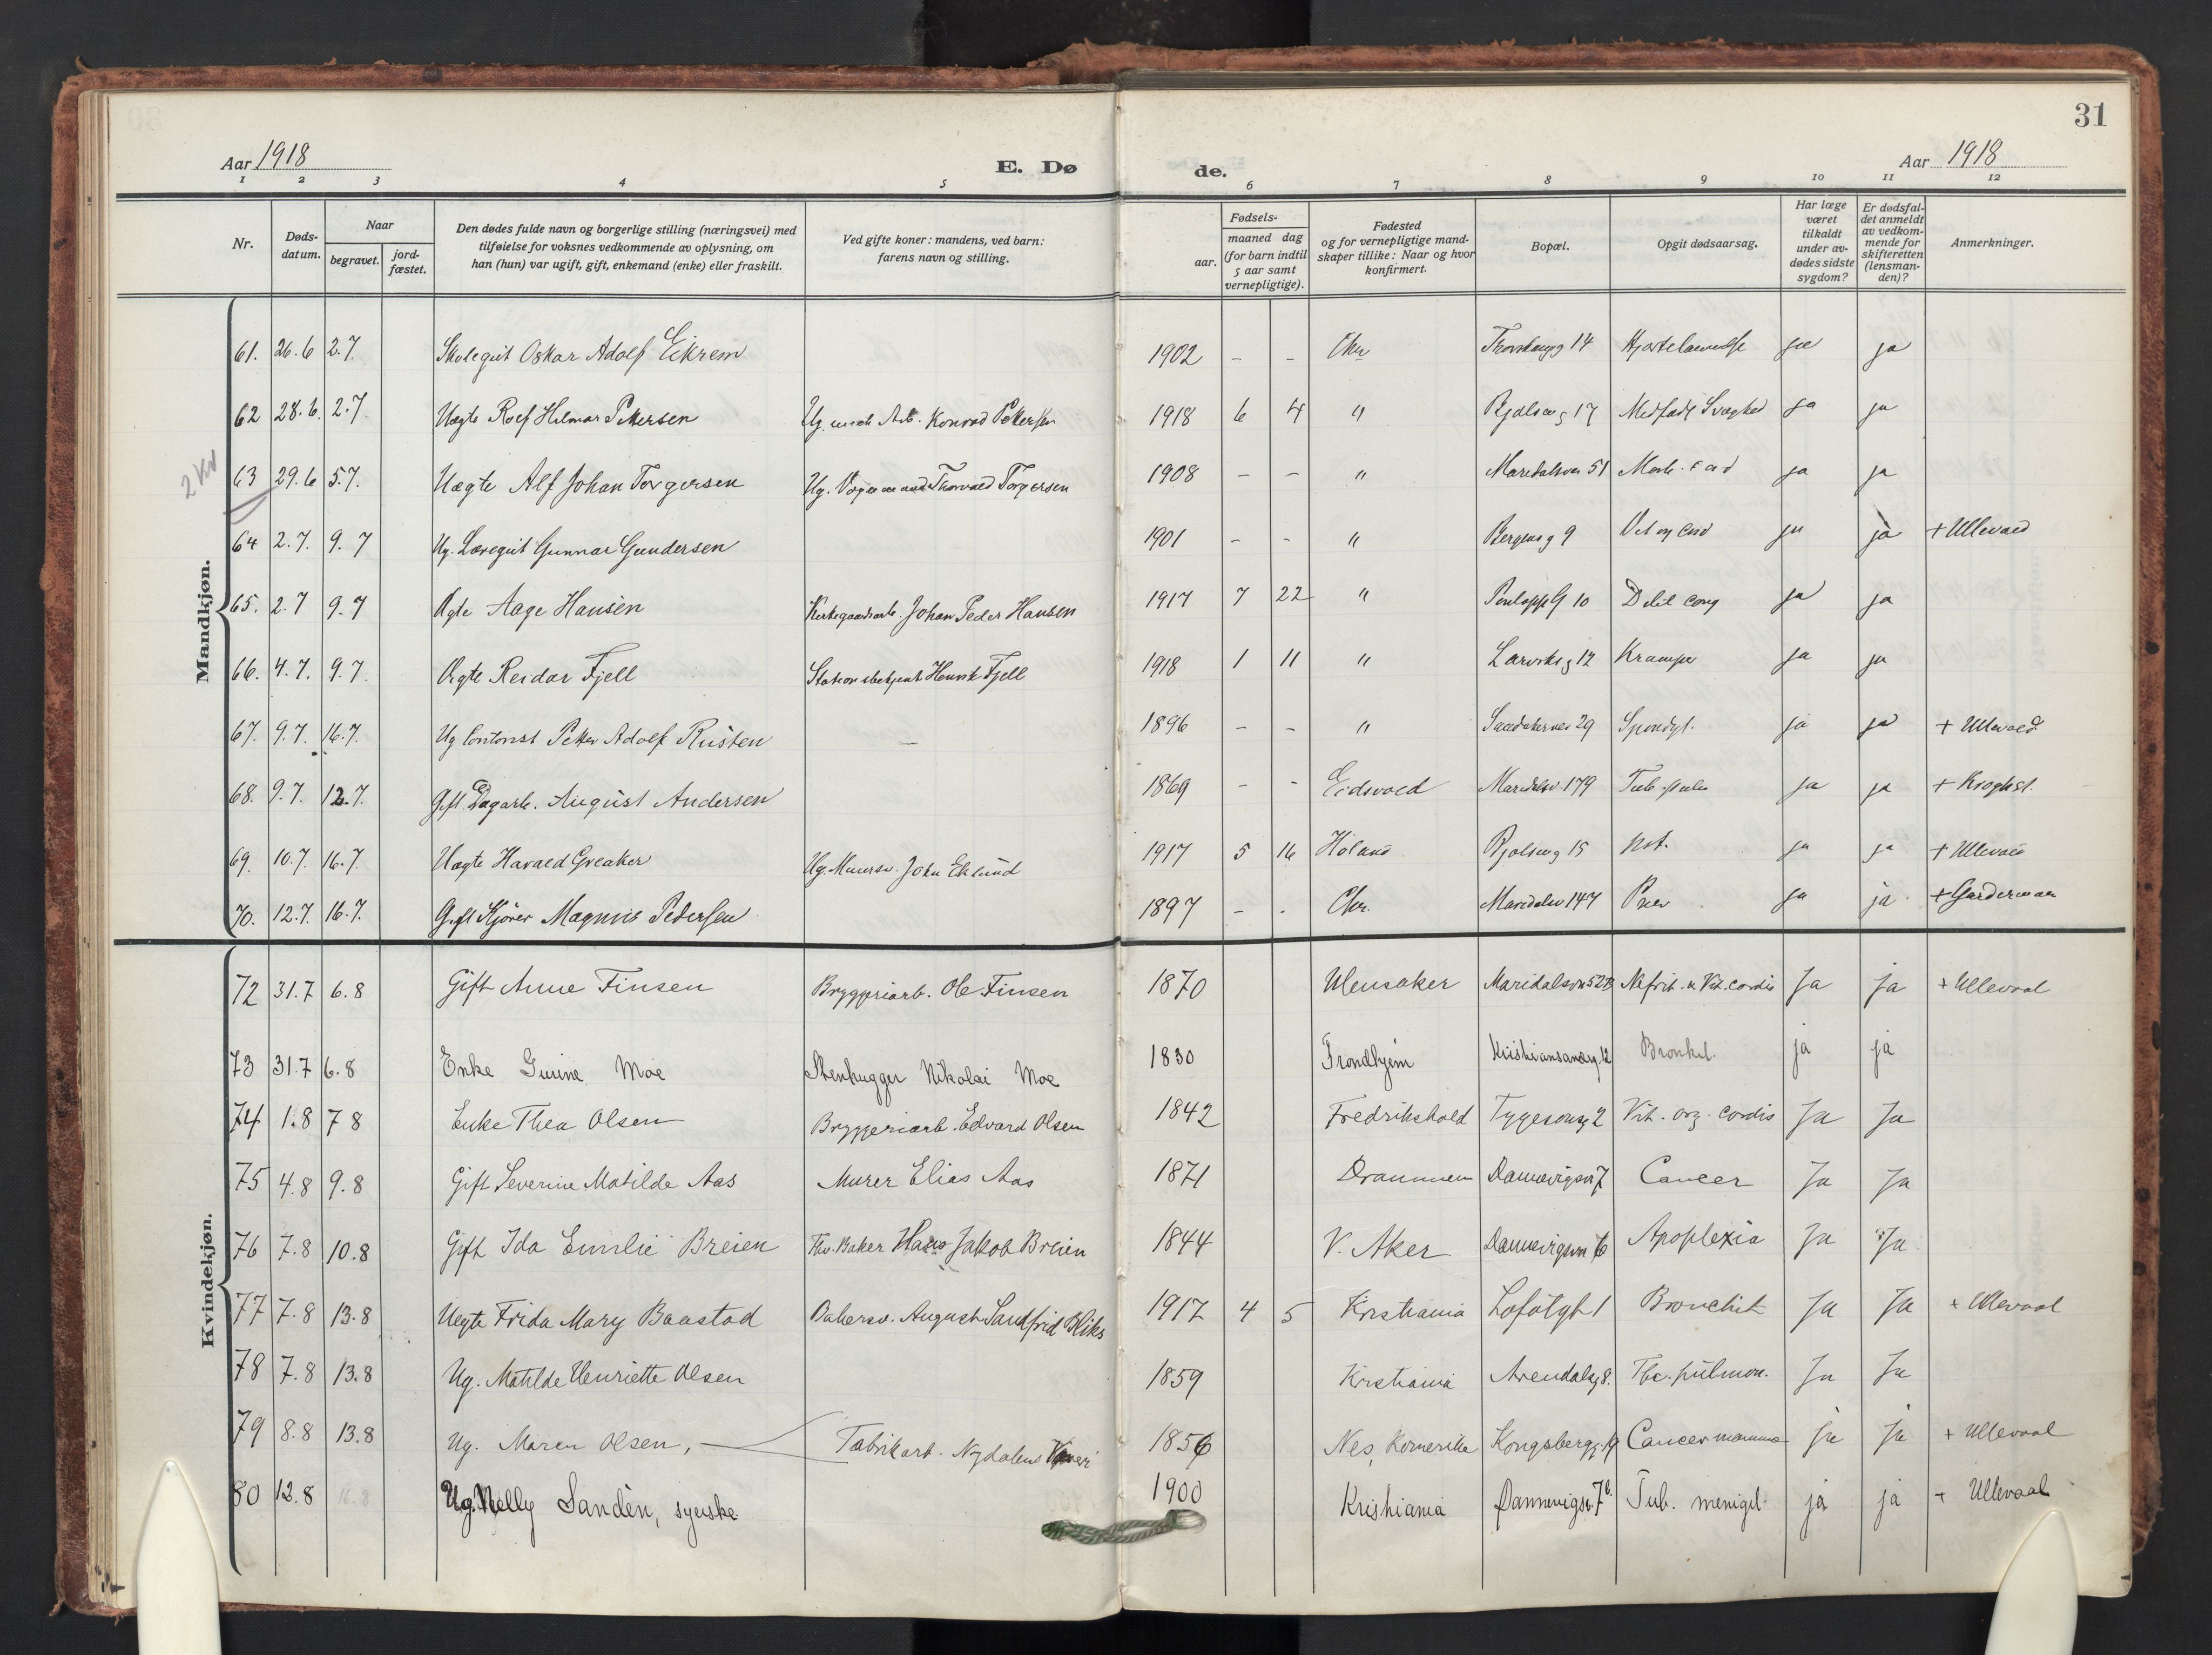 31
Aar 1918 E. Dø de. Aar 1918
1 2 3 4 5 6 7 8 9 10 11 12
Nr. Døds-datum. Naar begravet. jord-fæstet. Den dødes fulde navn og borgerlige stilling (næringsvei) med tilføielse for voksnes vedkommende av oplysning, om han (hun) var ugift, gift, enkemand (enke) eller fraskilt. Ved gifte koner: mandens, ved barn: farens navn og stilling. aar. Fødsels- maaned dag (for barn indtil 5 aar samt vernepligtige). Fødested og for vernepligtige mand-skaper tillike: Naar og hvor konfirmert. Bopæl. Opgit dødsaarsag. Har læge været tilkaldt under av-dødes sidste sygdom? Er dødsfal-det anmeldt av vedkom-mende for skifteretten (lensman-den)? Anmerkninger.
Mandkjøn.
61. 26.6 2.7. Skolegut Oskar Adolf Eikrem 1902 - - Chr 14 ja ja
62 28.6. 2.7. Uægte Rolf Hilmar Pettersen Ug. Arb. Konrad Pettersen 1918 6 4 " 17 Medfødt Svaghed ja ja
2 Kv
63 29.6 5.7. Uægte Alf Johan Torgersen Ug. Thorvald Torgersen 1908 - - " Maridalsvn 51 ja ja
64 2.7. 9.7 Ug. Læregut Gunnar Gundersen 1901 - - " Bergensg 9 ja ja + Ullevaal
65. 2.7 9.7 Ægte Aage Hansen Kirkegaardsarb. Johan Peder Hansen 1917 7 22 " 10 ja ja
66. 4.7. 9.7. Ægte Reidar Fjell Stationsbetjent Henrik Fjell 1918 1 11 " Larviksg 12 Kramper ja ja
67. 9.7. 16.7. Ug Contorist Petter Adolf Rusten — 1896 - - " 29 Spondyl. ja ja + Ullevaal
68. 9.7. 12.7. Gift Dagarb. August Andersen 1869 - - Eidsvold Maridalsv 179 ja ja + Kroghst.
69. 10.7. 16.7. Uægte Harald Greaker Ug. Murersv. John Eklund 1917 5 16 Høland 15 ja ja + Ullevaal
70. 12.7. 16.7. Gift Kjører Magnus Pedersen 1897 - - Chr. Maridalsv 147 Pnev ja ja + Gardermoen
Kvindekjøn.
72 31.7 6.8 Gift Anne Finsen Bryggeriarb. Ole Finsen 1870 Ulensaker Maridalsvn 52B Nefrit. & Vit. cordis Ja Ja + Ullevaal
73 31.7 6.8 Enke Gurine Moe Stenhugger Nikolai Moe 1830 Trondhjem Kristiansandsg. 12 Bronkit. ja ja
74 1.8 7 8 Enke Thea Olsen Bryggeriarb. Edvard Olsen 1842 Fredrikshald Tygesonsg 2 Vit. org. cordis Ja Ja
75 4.8 9.8 Gift Severine Matilde Aas Murer Elias Aas 1871 Drammen Dannevigsvn 7 Cancer Ja Ja
76 7.8 10.8 Gift Ida Emilie Breien Fhv. Baker Hans Jakob Breien 1844 V. Aker Dannevigsvn 16 Apoplexia Ja Ja
77 7.8 13.8 Uegte Frida Mary Baastad Bakersv. August Sandfrid Bliks 1917 4 5 Kristiania Lofotgt 1 Bronchit Ja Ja + Ullevaal
78 7.8 13.8 Ug. Matilde Henriette Olsen 1859 Kristiania Arendalsg 8. Tbc. pulmon. Ja Ja
79 8.8 13.8 Ug. Maren Olsen, — Fabrikarb. Nydalens 1856 Nes, Romerike Kongsbergg. 19 Cancer mamma ja ja + Ullevaal
80 12.8 16.8 Ug. Nelly Sandén, syerske 1900 Kristiania Dannevigsv. 7b. Tub. menigit. ja ja + Ullevaal